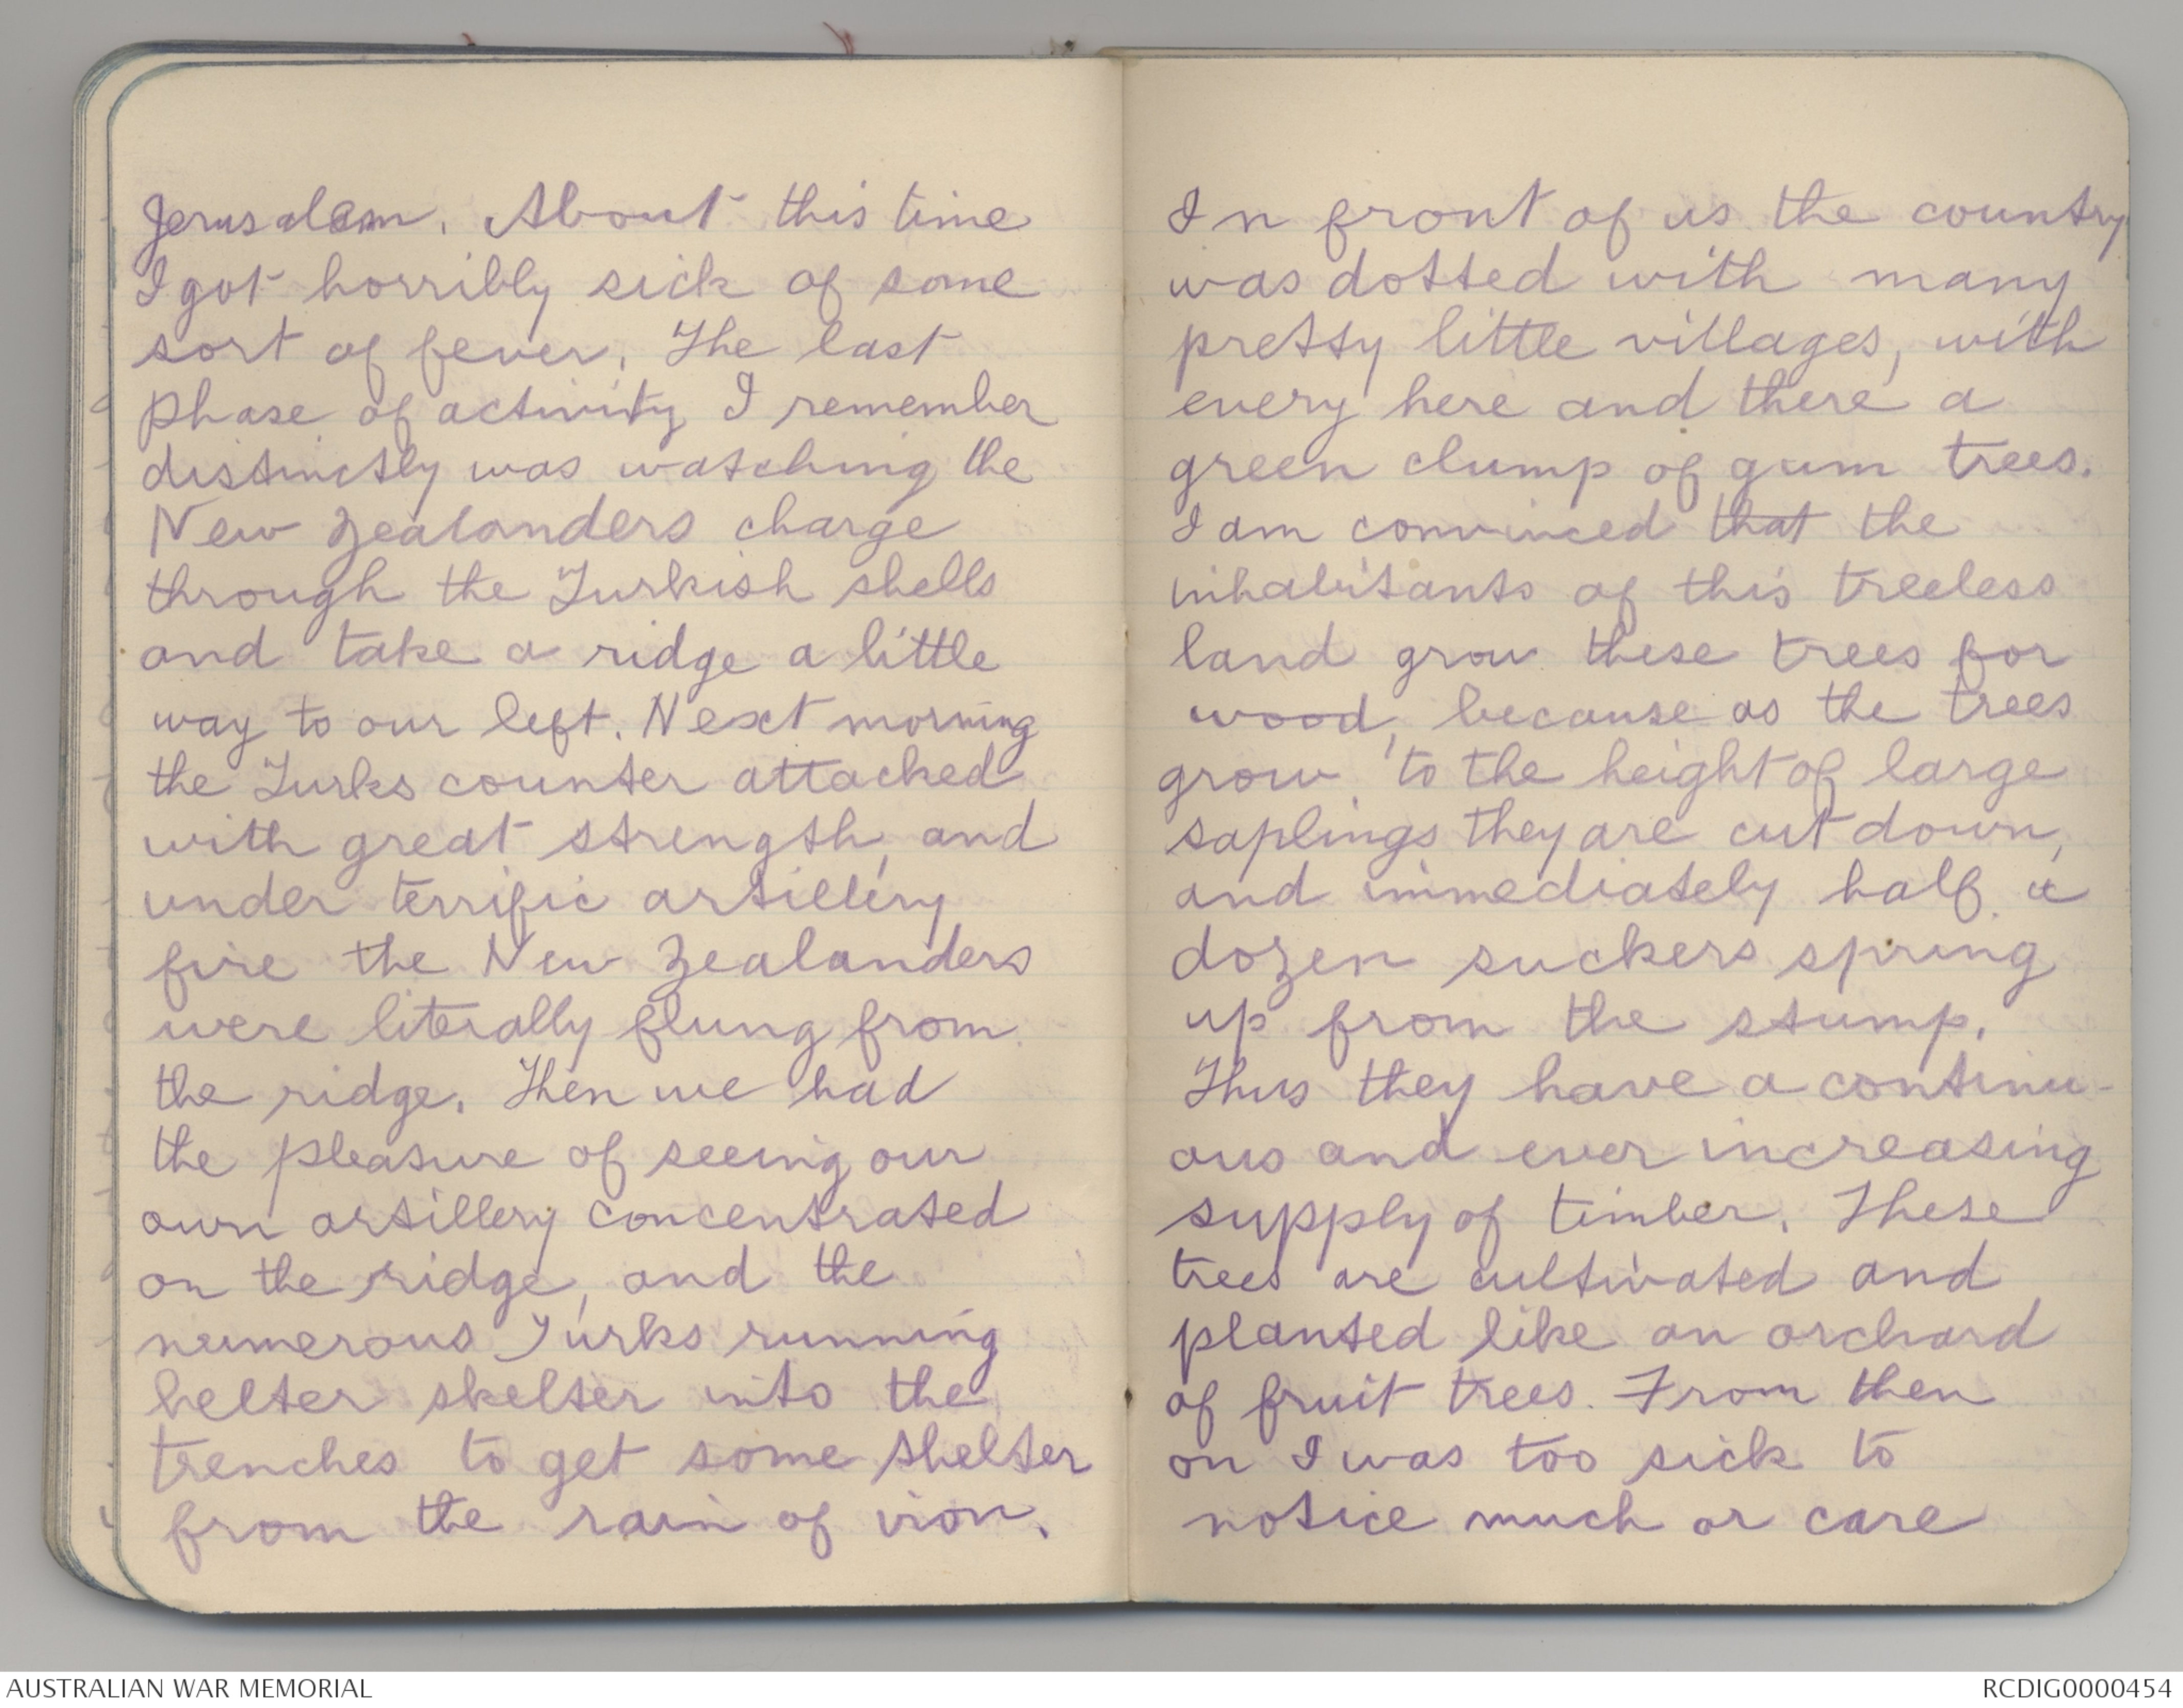 Jerusalem. About this time
I got horribly sick of some
sort of fever. The last
phase of activity I remember
distinctly was watching the
New Zealanders charge
through the Turkish shells
and take a ridge a little
way to our left. Next morning
the Turks counter attacked
with great strength, and
under terrific artillery
fire the New Zealanders
were literally flung from
the ridge. Then we had
the pleasure of seeing our
own artillery concentrated
on the ridge, and the
numerous Turks running
helter skelter into the
trenches to get some shelter
from the rain of iron.
In front of us the country
was dotted with many
pretty little villages, with
every here and there a
green clump of gum trees.
I am convinced that the
inhabitants of this treeless
land grow these trees for
wood, because as the trees
grow to the height of large
saplings they are cut down,
and immediately half a
dozen suckers spring
up from the stump.
Thus they have a continu-
ous and ever increasing
supply of timber. These
trees are cultivated and
planted like an orchard
of fruit trees. From then
on I was too sick to
notice much or care
AUSTRALIAN WAR MEMORIAL
RCDIG0000454